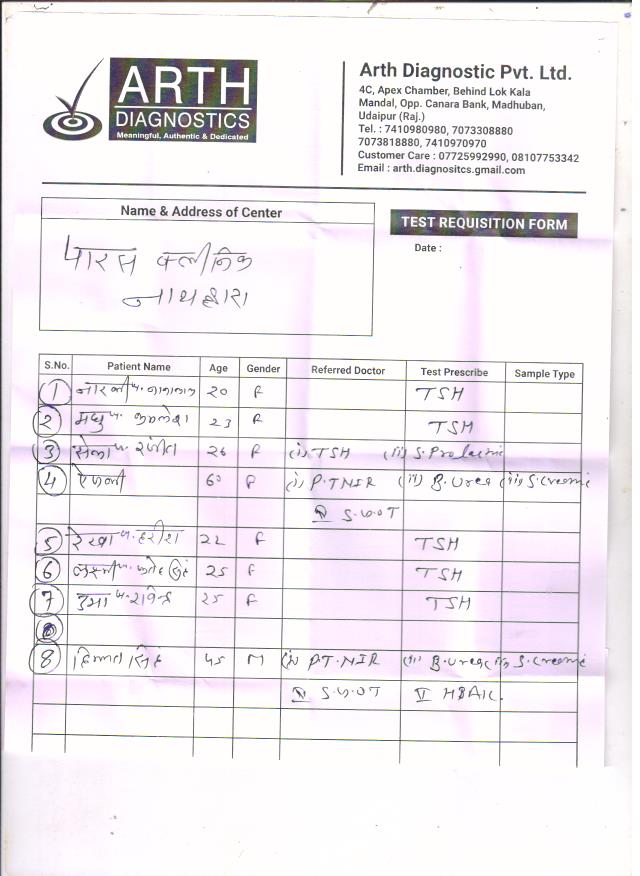 ARTH
DIAGNOSTICS
Meaningful, Authentic & Dedicated
Arth Diagnostic Pvt. Ltd.
4C, Apex Chamber, Behind Lok Kala
Mandal, Opp. Canara Bank, Madhuban,
Udaipur (Raj.)
Tel. : 7410980980, 7073308880
7073818880, 7410970970
Customer Care : 07725992990, 08107753342
Email : arth.diagnositcs.gmail.com
Name & Address of Center
TEST REQUISITION FORM
Date :
पारस क्लीनिक
नाथद्वारा
S.No. Patient Name Age Gender Referred Doctor Test Prescribe Sample Type
1 20 F TSH
2 मधु 23 F TSH
3 26 F (i) TSH (ii) S. Prolactin
4 60 F (i) P.T INR (ii) B. Urea (iii) S.
S.G.OT
5 रेखा हरीश 22 F TSH
6 25 F TSH
7 25 F TSH
8 हिम्मत सिंह 45 M (i) P.T. INR (ii) B. Urea (iii) S.
S.G.OT V HBA1C